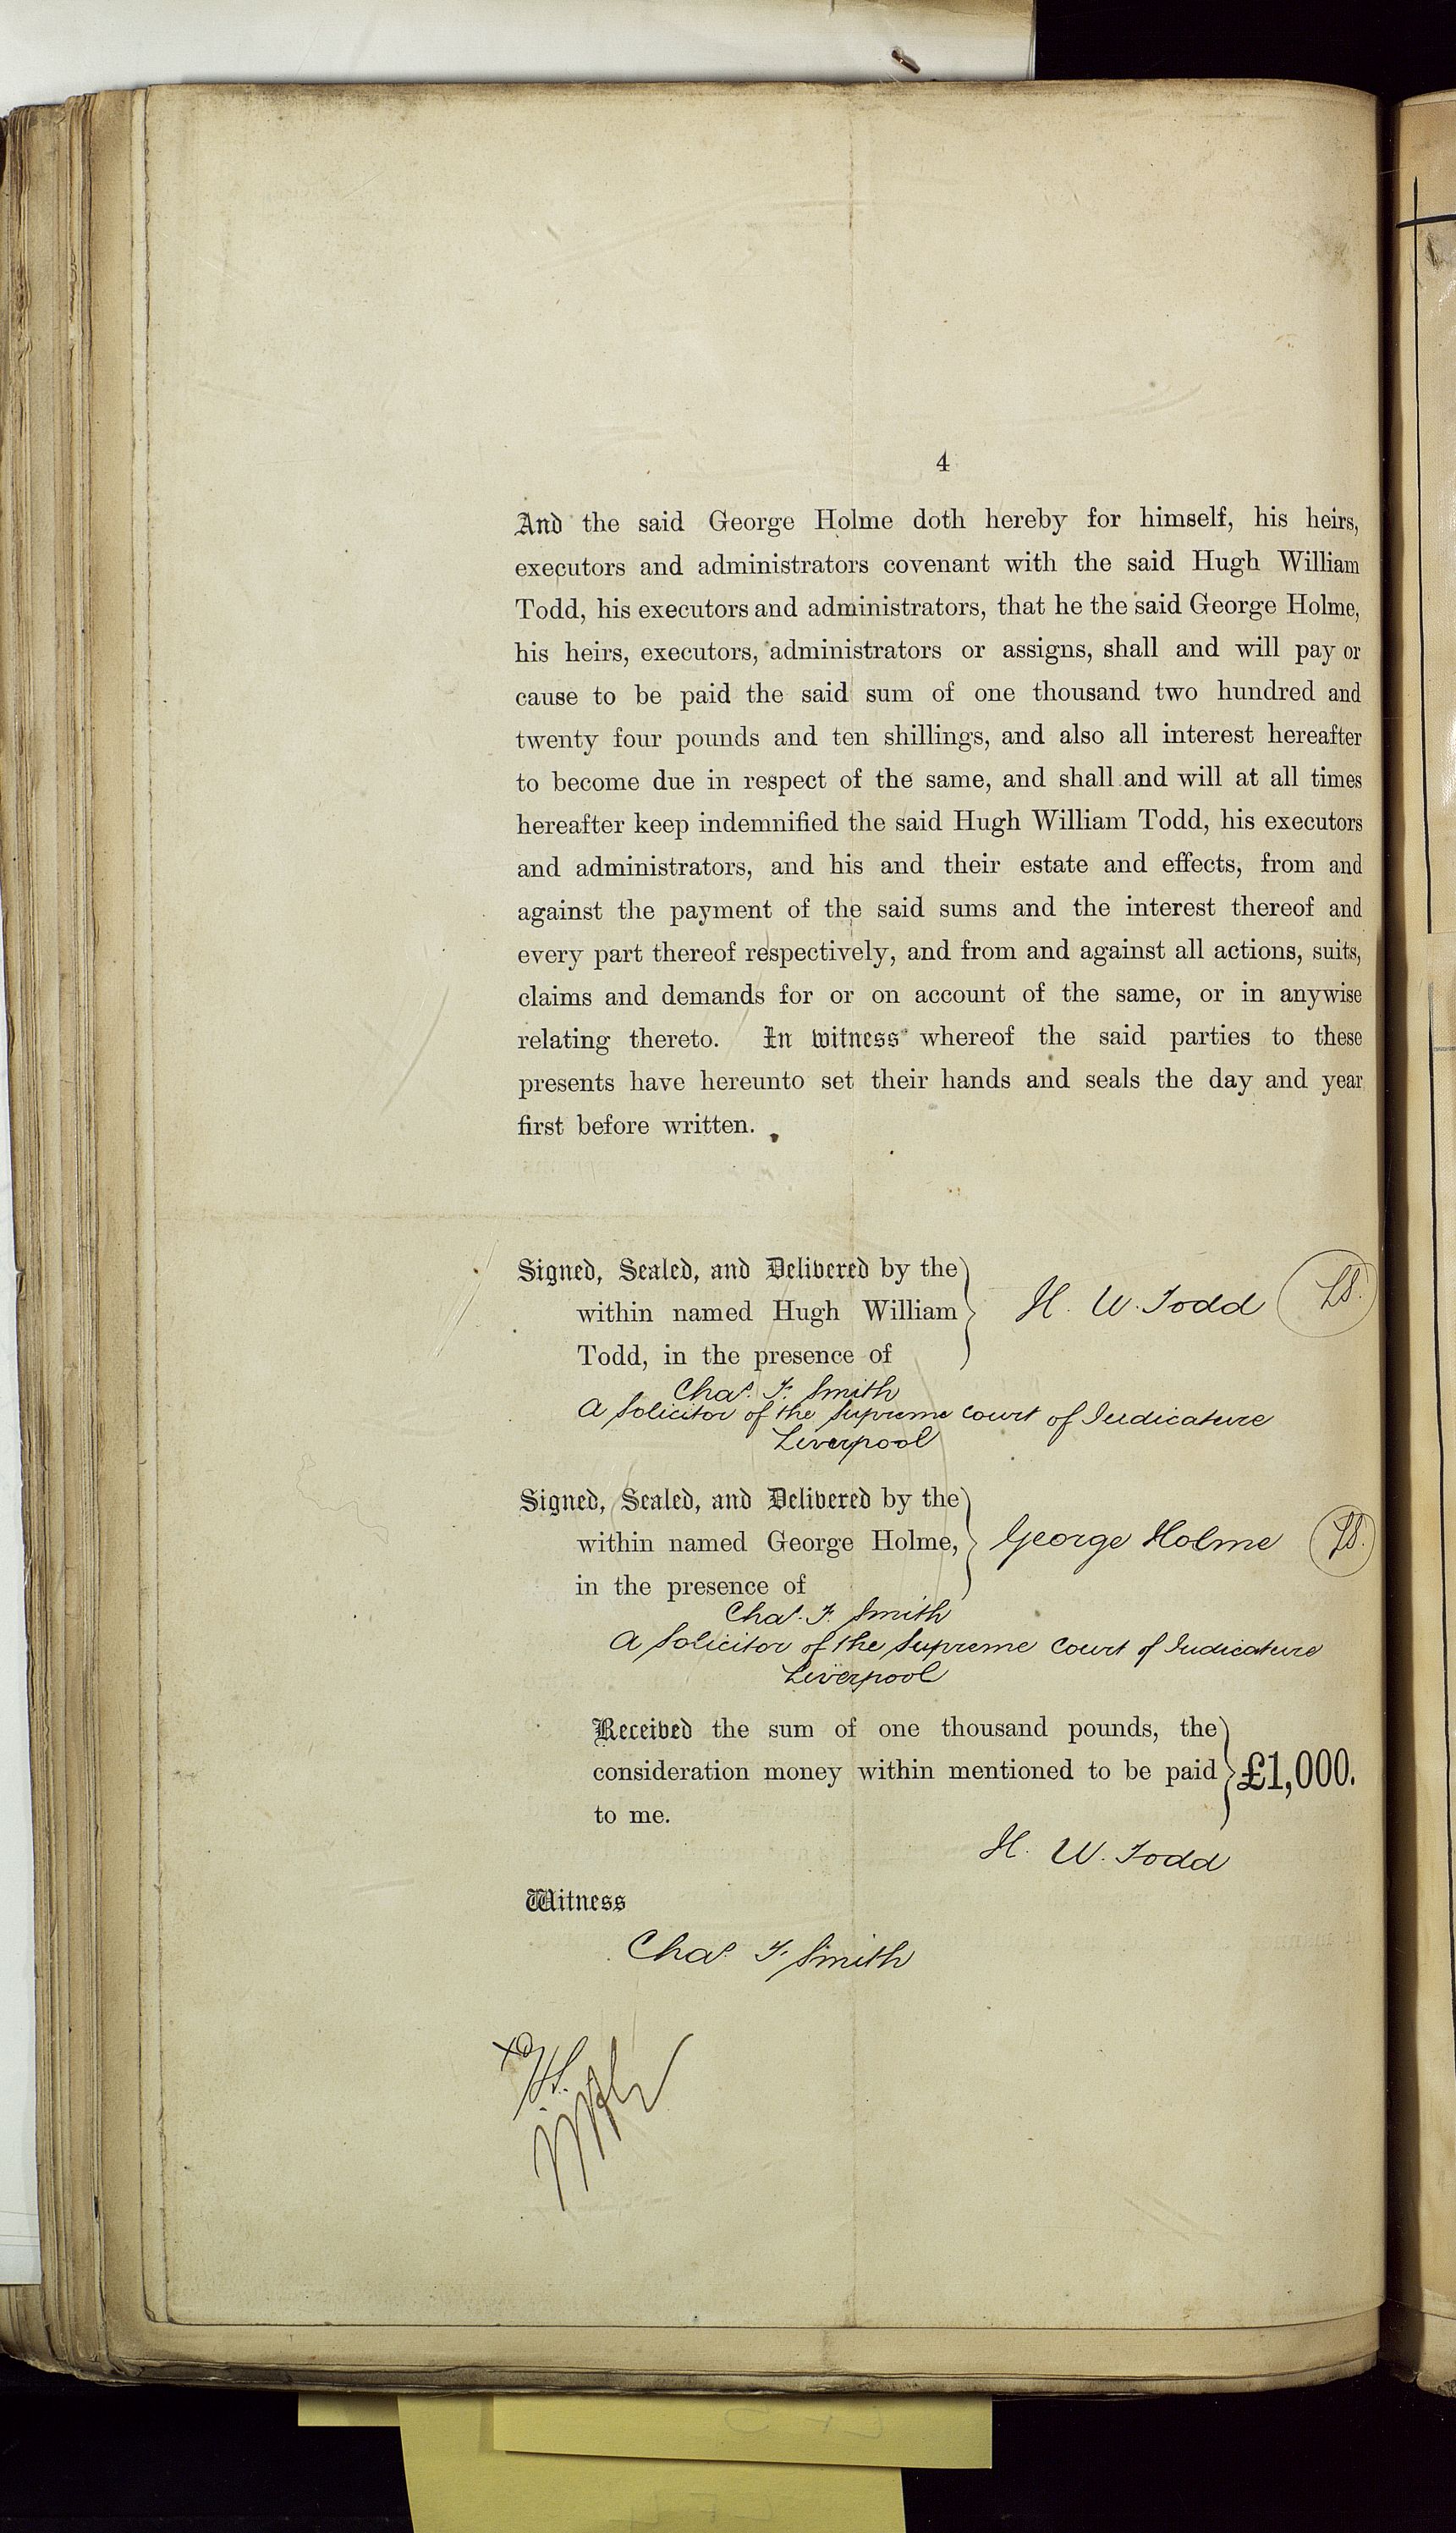 4
And the said George Holme doth hereby for himself, his heirs,
executors and administrators covenant with the said Hugh William
Todd, his executors and administrators, that he the said George Holme,
his heirs, executors, administrators or assigns, shall and will pay or
cause to be paid the said sum of one thousand two hundred and
twenty four pounds and ten shillings, and also all interest hereafter
to become due in respect of the same, and shall and will at all times
hereafter keep indemnified the said Hugh William Todd, his executors
and administrators, and his and their estate and effects, from and
against the payment of the said sums and the interest thereof and
every part thereof respectively, and from and against all actions, suits,
claims and demands for or on account of the same, or in anywise
relating thereto. In witness whereof the said parties to these
presents have hereunto set their hands and seals the day and year
first before written.
Signed, Sealed, and Delivered by the
within named Hugh William
Todd, in the presence of
H. W. Todd LS.
Chas. F. Smith
A Solicitor of the Supreme Court of Judicature
Liverpool
Signed, Sealed, and Delivered by the
within named George Holme,
in the presence of
George Holme LS.
Chas. F. Smith
A Solicitor of the Supreme Court of Judicature
Liverpool
Received the sum of one thousand pounds, the
consideration money within mentioned to be paid
to me.
£1,000.
H. W. Todd
Witness
Chas. F. Smith